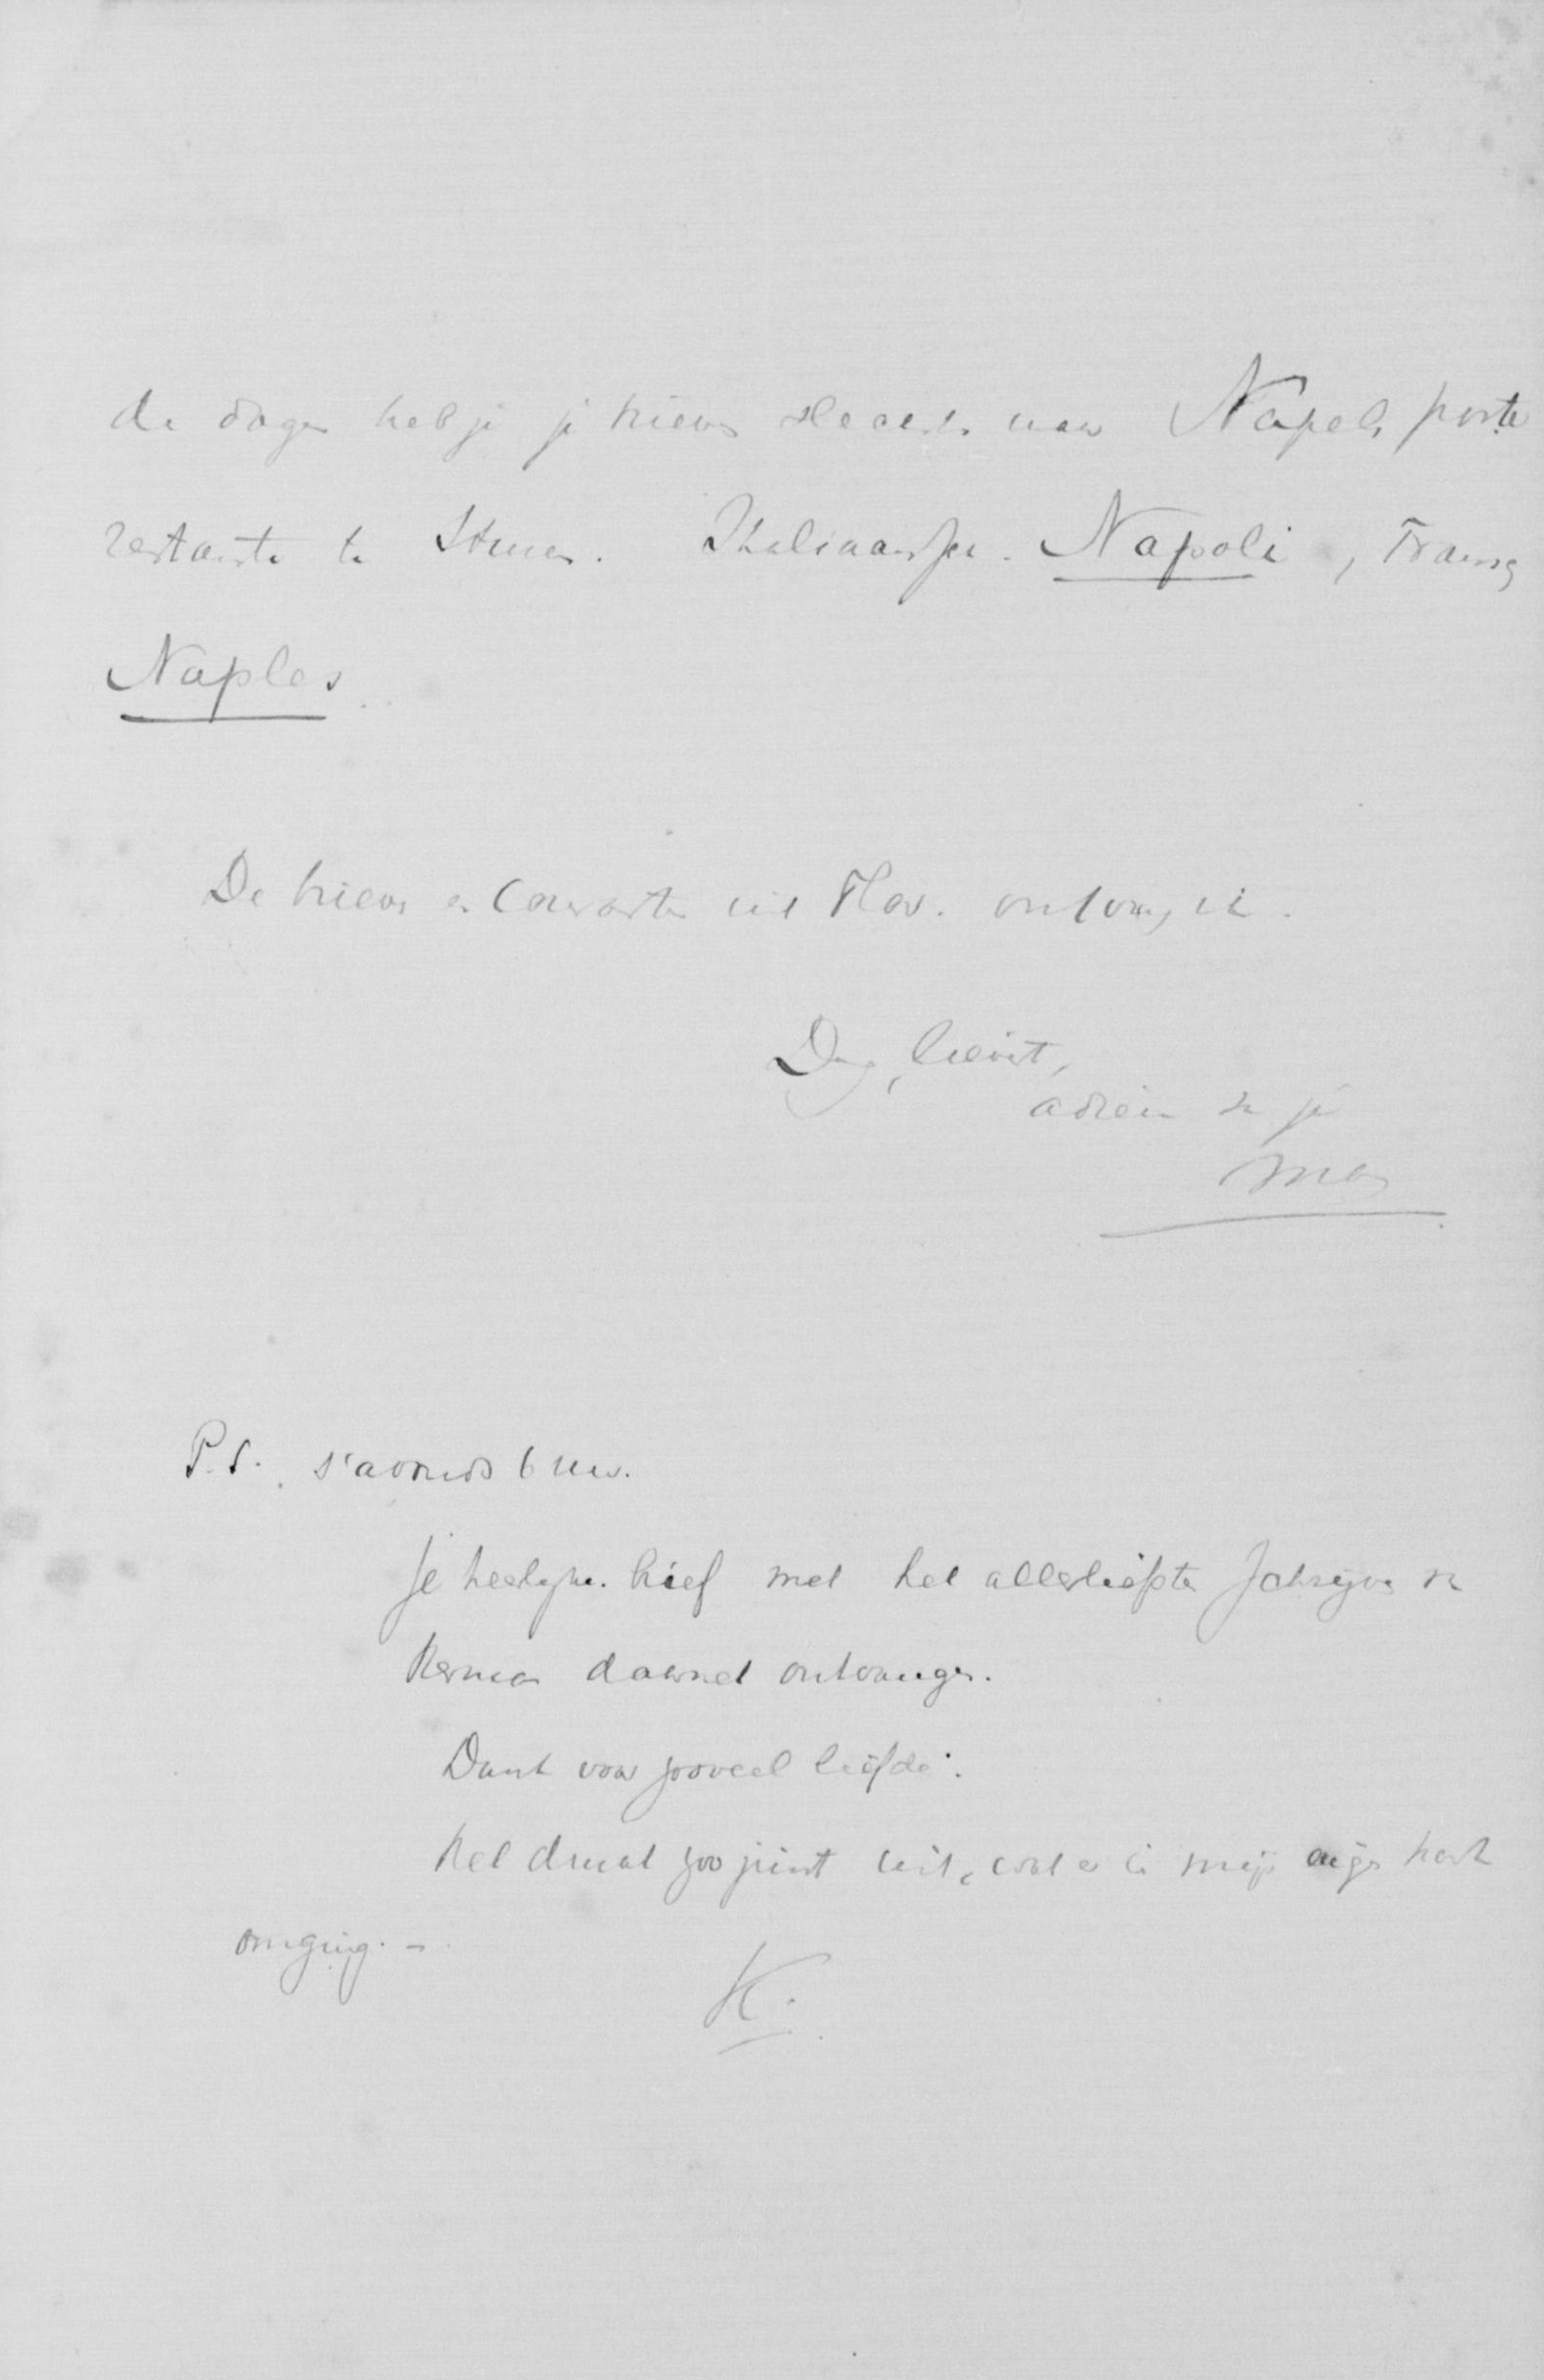 de dagen heb je je brieven slechts naar Napels poste
restante te sturen. Italiaansch. Napoli, Fransch
Naples.
De brieven en couranten uit Flor. ontving ik.
Dag, lievert,
adieu en je
man
P.S. s'avonds 6 uur.
Je heerlijke brief met het allerliefste schrijven
daarnet ontvangen.
Dank voor zooveel liefde.
Het drukt zoo juist uit, wat er in mijn eigen hart
omging. –
K.